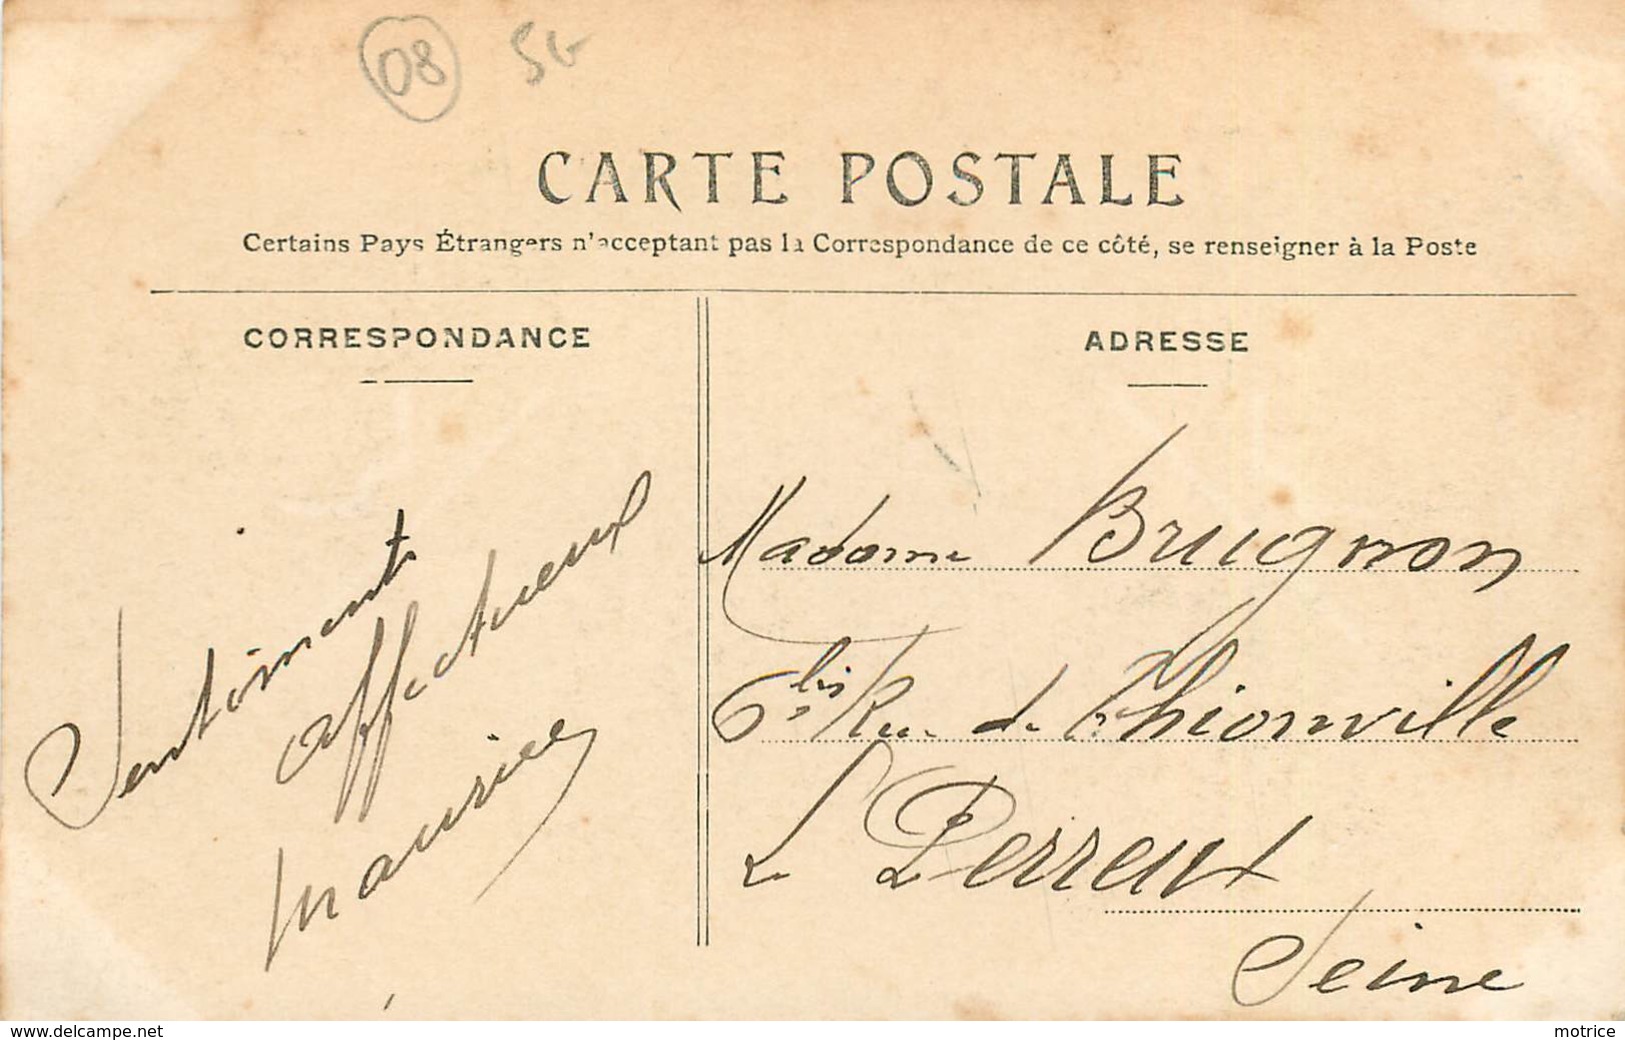 08 SG
CARTE POSTALE
Certains Pays Étrangers n'acceptant pas la Correspondance de ce côté, se renseigner à la Poste
CORRESPONDANCE
Sentiments
affectueux
Maurice
ADRESSE
Madame Brugnon
6 bis Rue de Thionville
Le Perreux
Seine
www.delcampe.net
motrice